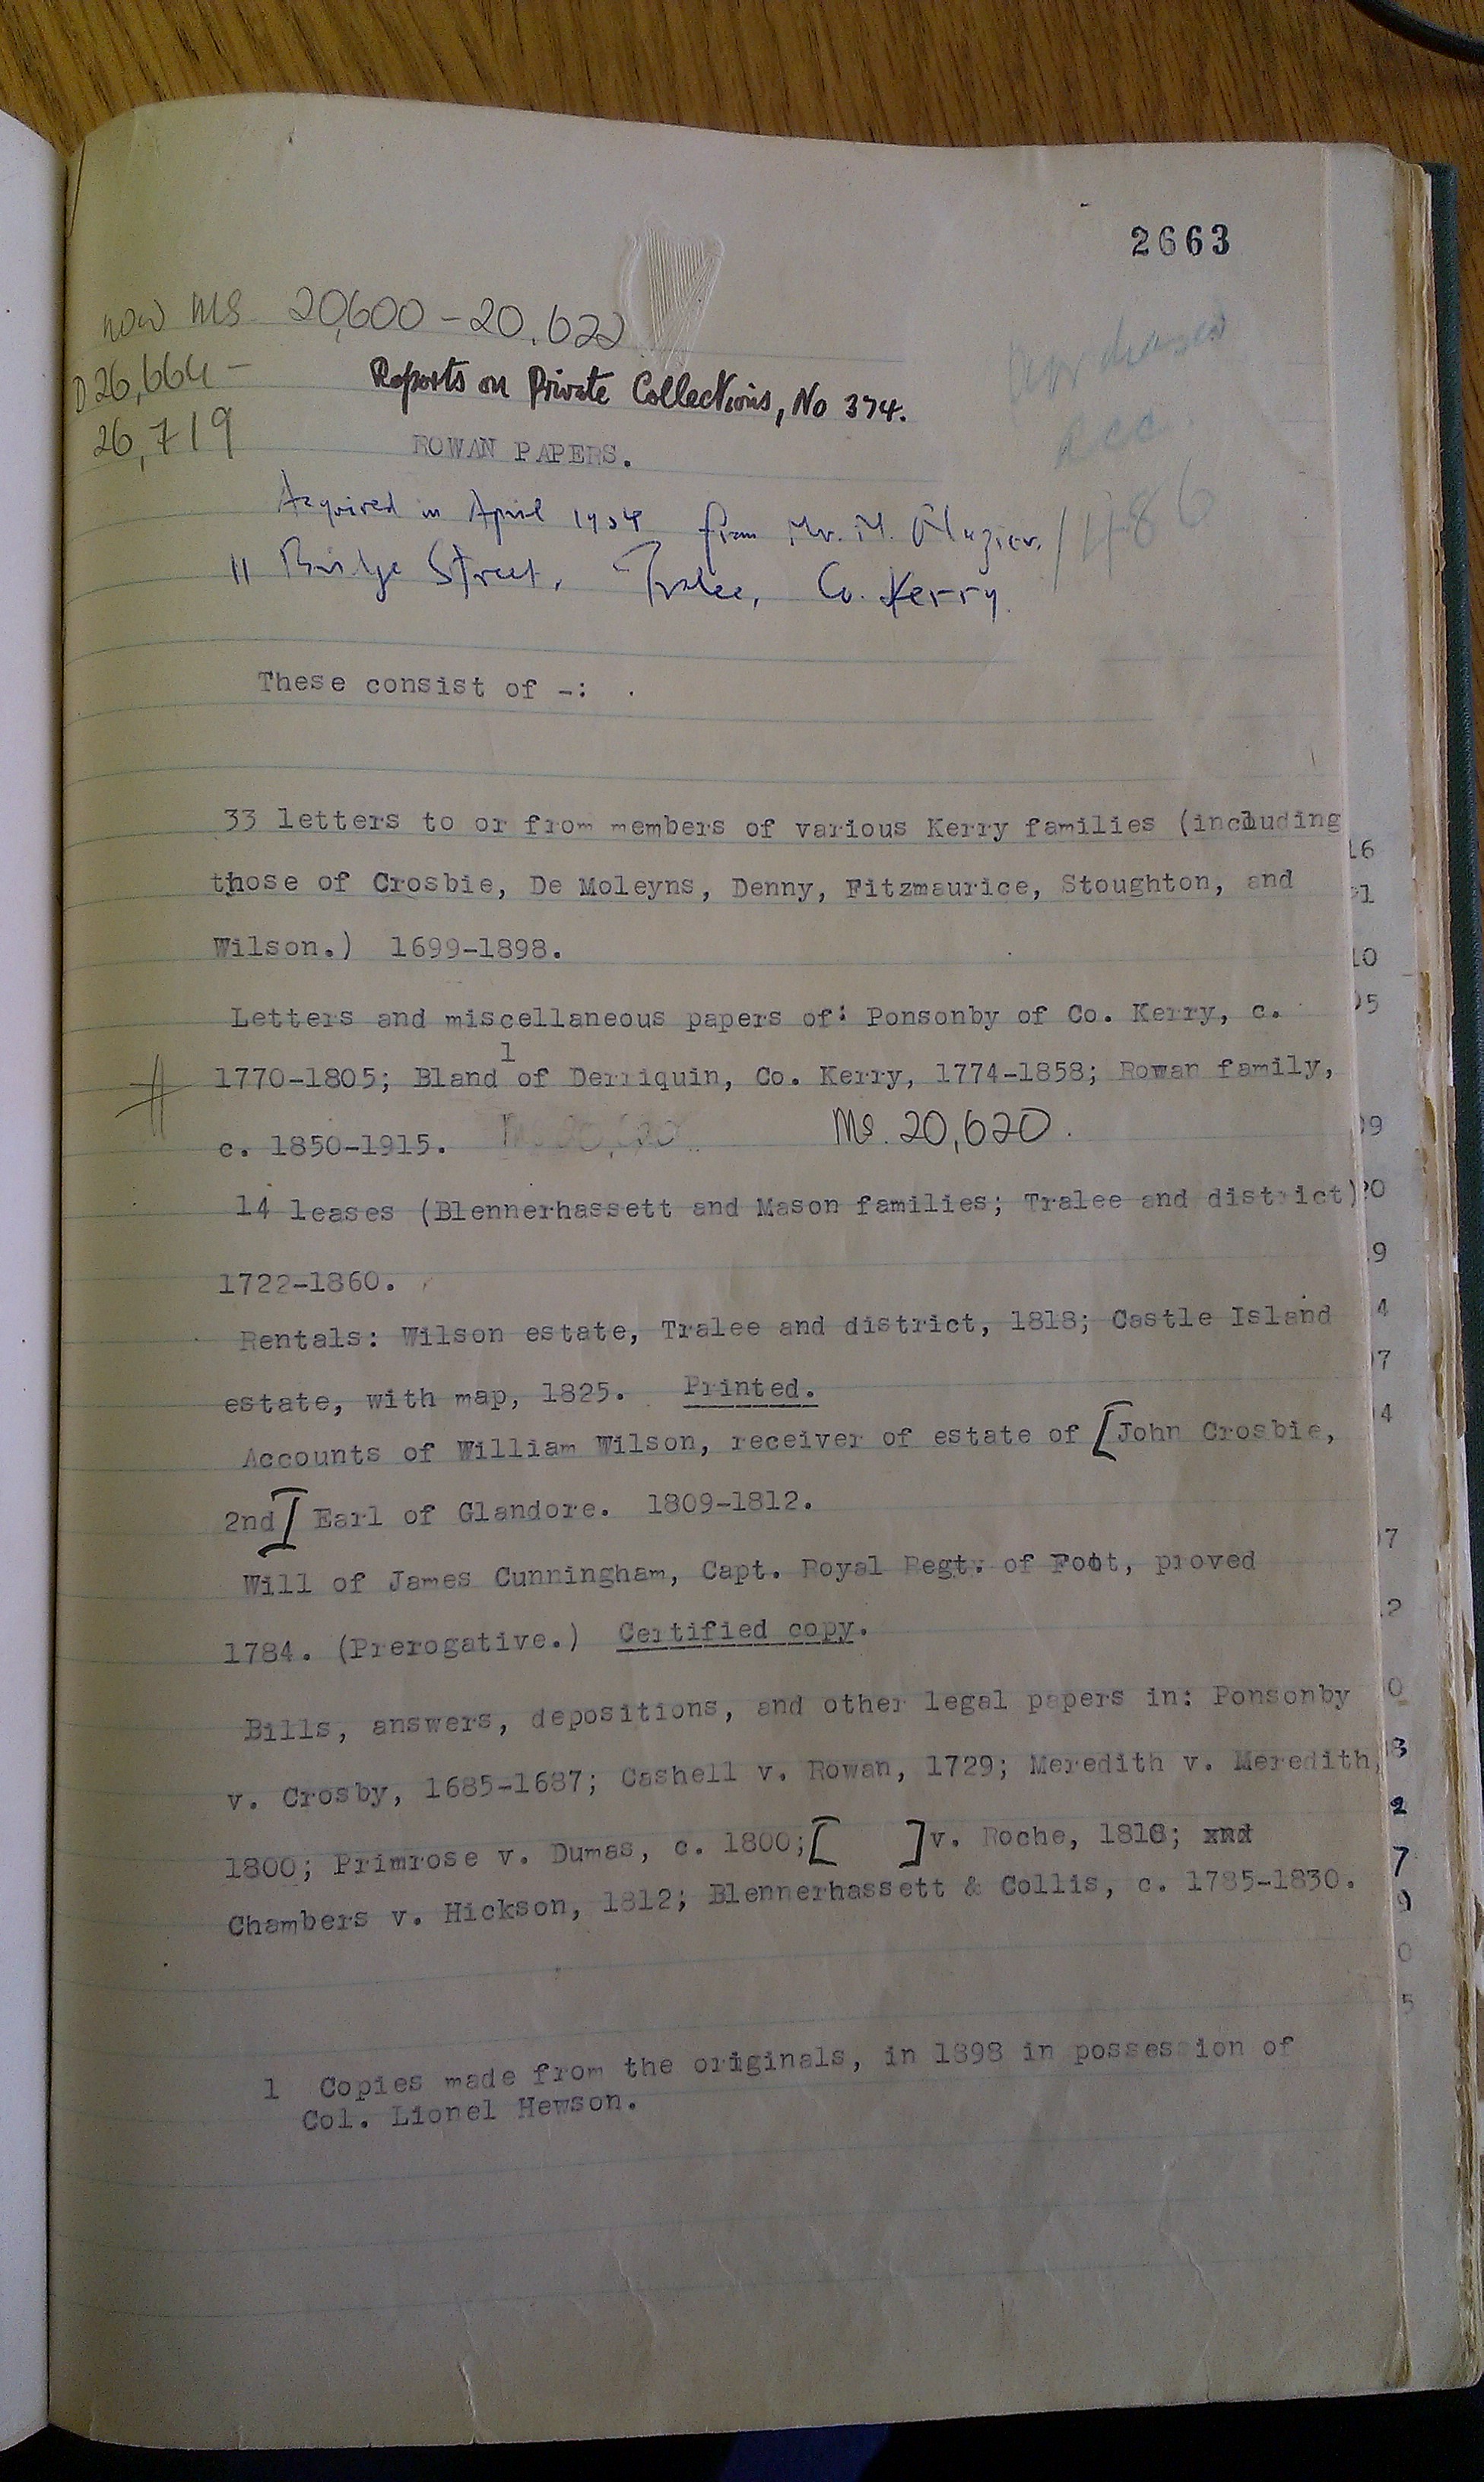 2663
now MS 20,600-20,622
D 26,664-
26,719
Reports on Private Collections, No 374.
ROWAN PAPERS.
Purchased
Acc.
1486
Acquired in April from Mr. M.
11 Bridge Street, Tralee, Co. Kerry.
These consist of -:
33 letters to or from members of various Kerry families (including
those of Crosbie, De Moleyns, Denny, Fitzmaurice, Stoughton, and
Wilson.) 1699-1898.
Letters and miscellaneous papers of: Ponsonby of Co. Kerry, c.
# 1770-1805; Bland 1 of Derriquin, Co. Kerry, 1774-1858; Rowan family,
c. 1850-1915. MS. 20,620.
14 leases (Blennerhassett and Mason families; Tralee and district)
1722-1860.
Rentals: Wilson estate, Tralee and district, 1818; Castle Island
estate, with map, 1825. Printed.
Accounts of William Wilson, receiver of estate of [John Crosbie,
2nd] Earl of Glandore. 1809-1812.
Will of James Cunningham, Capt. Royal Regt. of Foot, proved
1784. (Prerogative.) Certified copy.
Bills, answers, depositions, and other legal papers in: Ponsonby
v. Crosby, 1685-1687; Cashell v. Rowan, 1729; Meredith v. Meredith,
1800; Primrose v. Dumas, c. 1800; [ ] v. Roche, 1818; xnd
Chambers v. Hickson, 1812; Blennerhassett & Collis, c. 1785-1830.
1 Copies made from the originals, in 1898 in possession of
Col. Lionel Hewson.